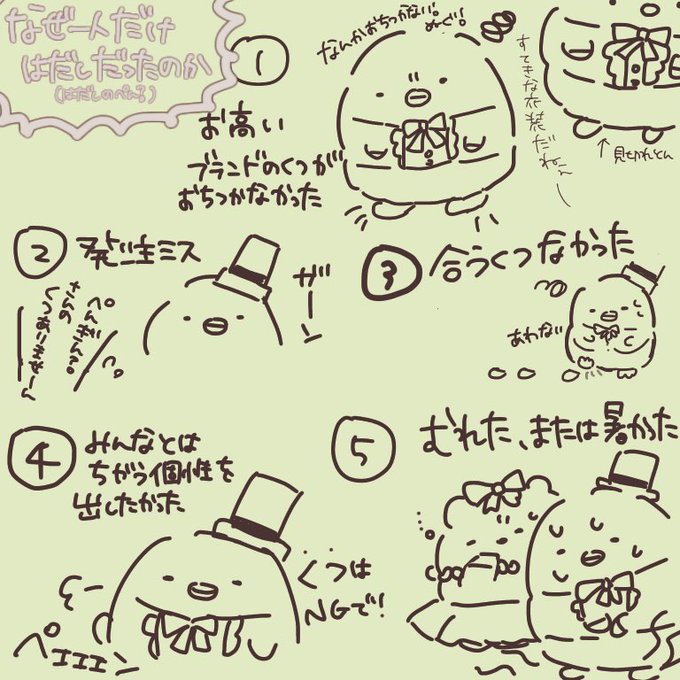 なぜ一人だけ
はだしだったのか
(はだしのぺん?)
①
お高い
ブランドのくつが
おちつかなかった
なんかおちつかない。
めーぐ!
すてきな衣装だねぇ〜
↑見せかねとん
② 発注ミス
ガーン
ぺんぎん?
さんの
くつありませーん
③ 合うくつなかった
あわない
④ みんなとは
ちがう個性を
出したかった
くつは
NGで!
ペェェェン
⑤ むれた、または暑かった